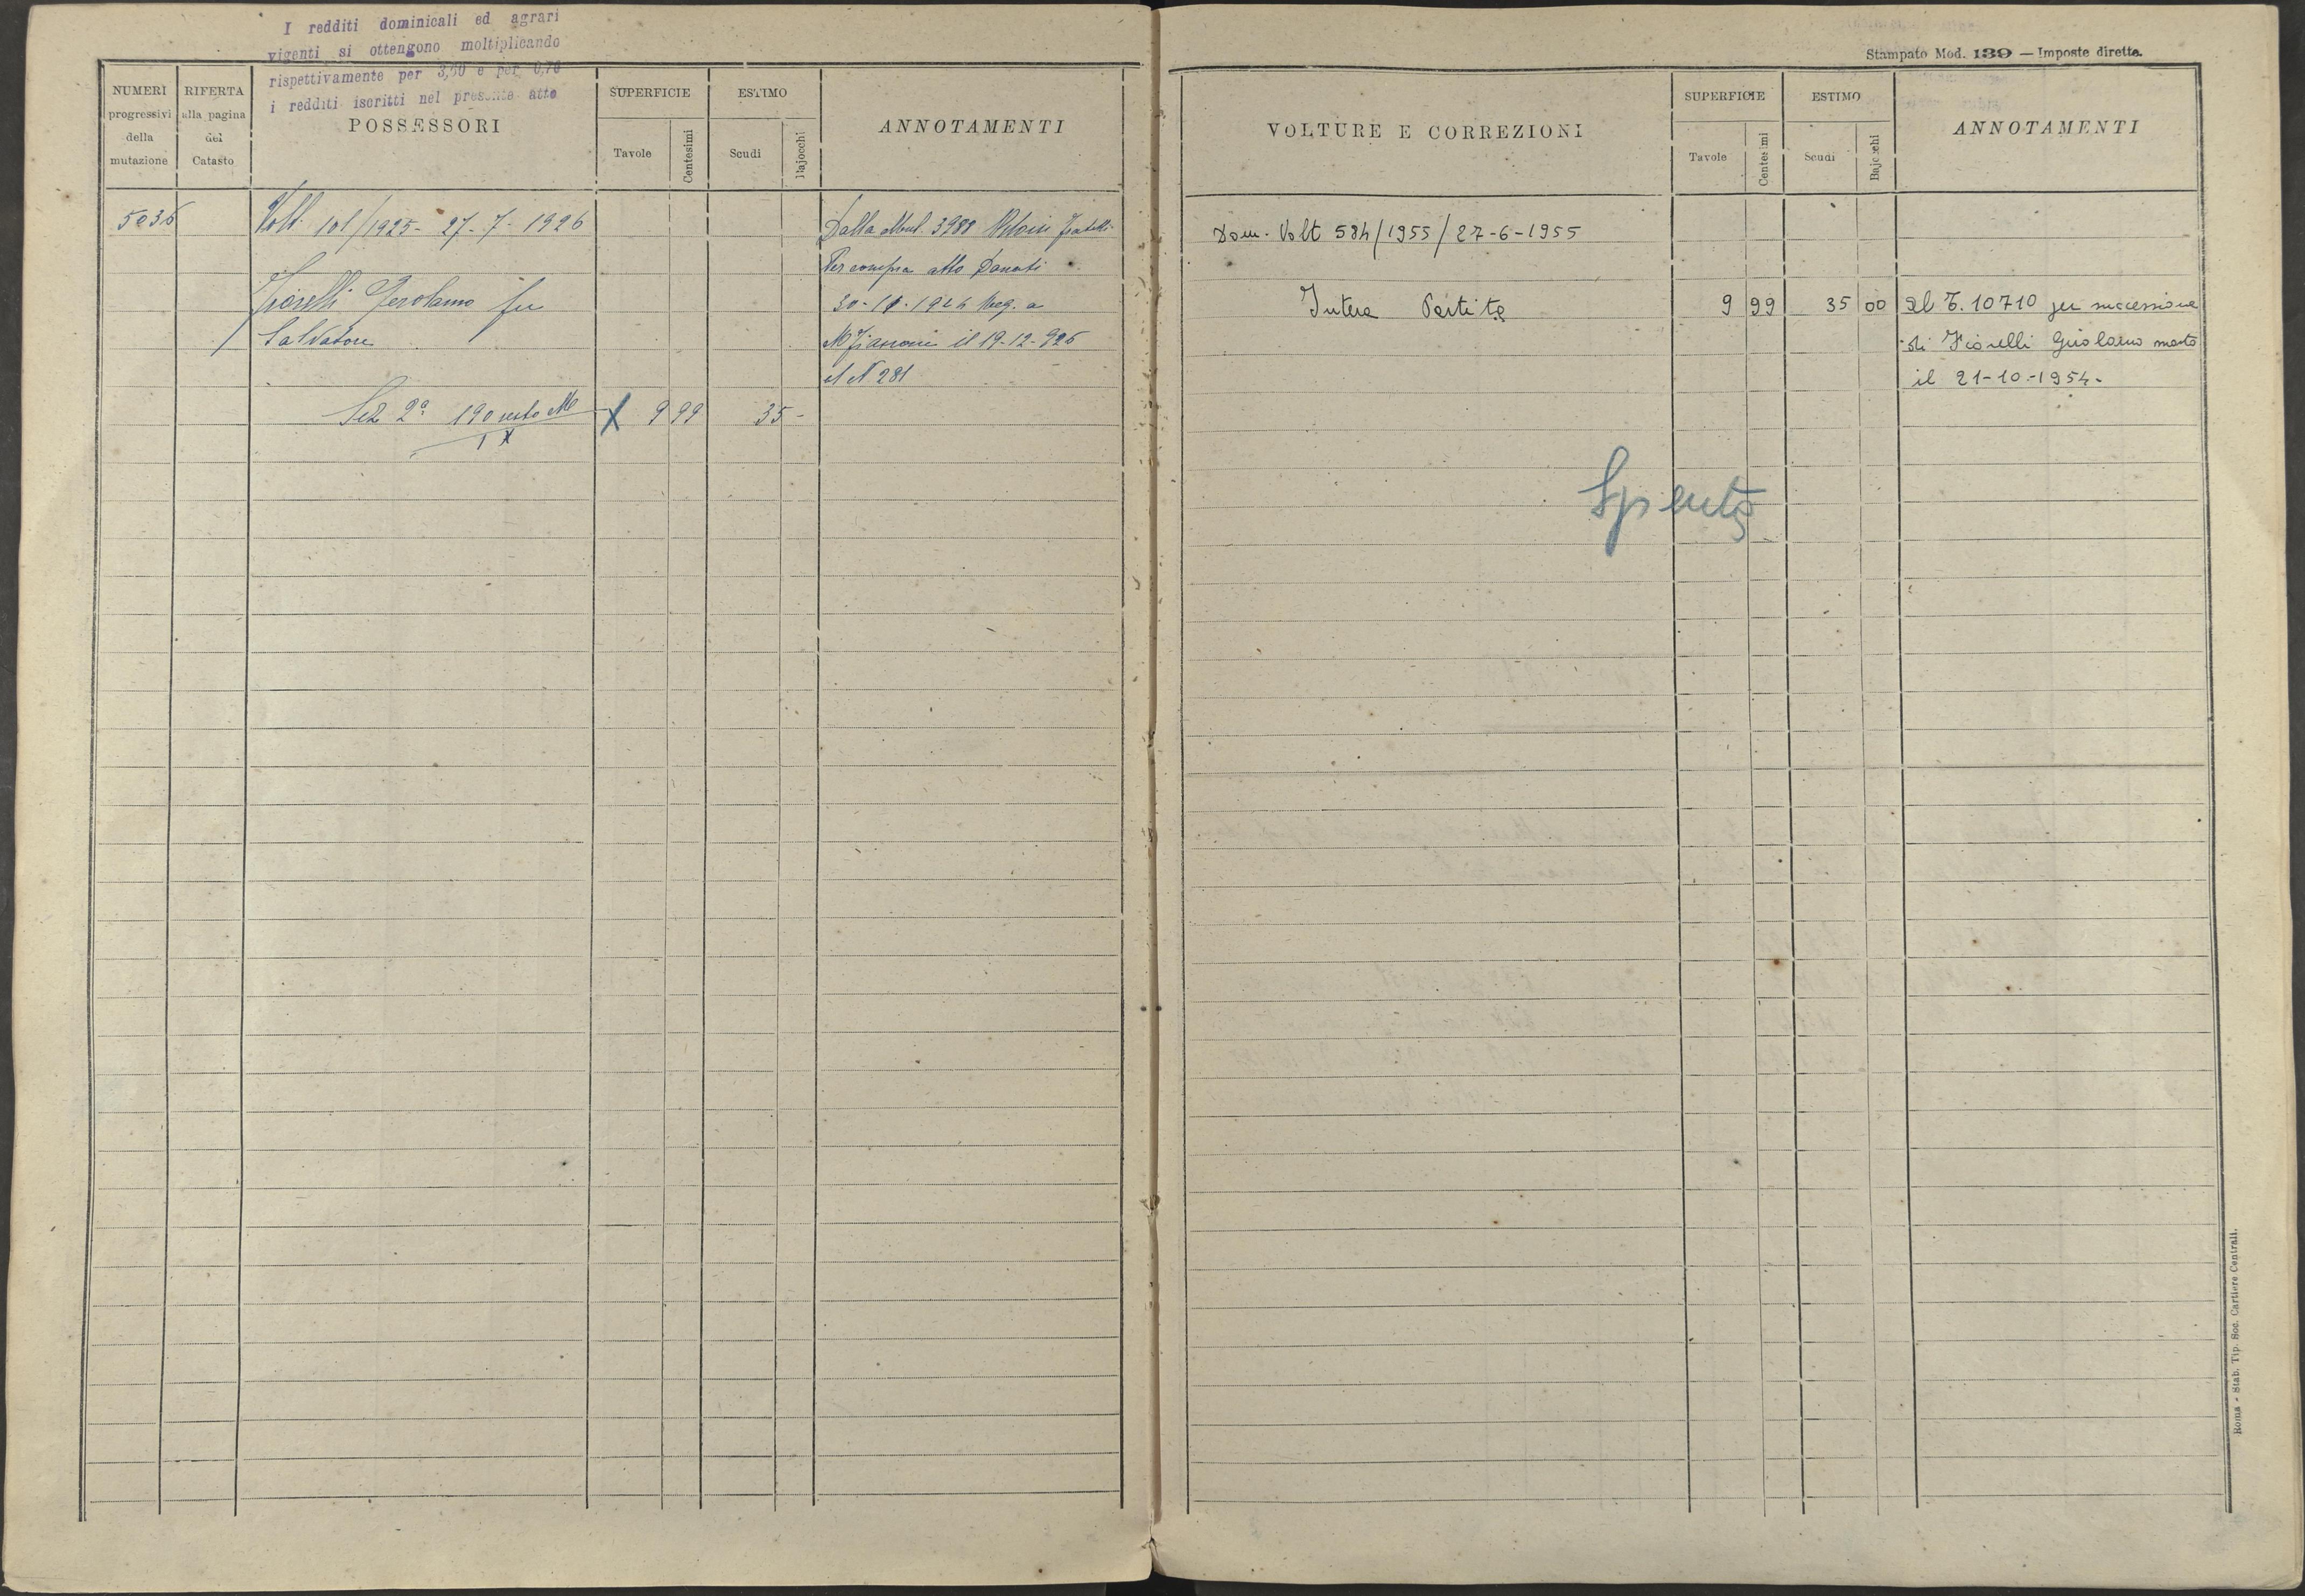 I redditi dominicali ed agrari
vigenti si ottengono moltiplicando
rispettivamente per 3,60 e per 0,70
i redditi iscritti nel presente atto
NUMERI
progressivi
della
mutazione
RIFERTA
alla pagina
del
Catasto
POSSESSORI
SUPERFICIE
Tavole
Centesimi
ESTIMO
Scudi
Bajocchi
ANNOTAMENTI
5036
Volt. 101/1925 - 27-7-1926
Fiorelli Gerolamo fu
Salvatore
Sez 2ª 190 resto
1
X 9 99 35 -
Dalla Mut. 3988 fratelli
Per compra atto Donati
Reg. a
il 19-12-925
al N 281
Stampato Mod. 139 — Imposte dirette.
VOLTURE E CORREZIONI
SUPERFICIE
Tavole
Centesimi
ESTIMO
Scudi
Bajocchi
ANNOTAMENTI
Dom. Volt 584/1955/27-6-1955
Intera Partita 9 99 35 00
al T. 10710 per successione
di Fiorelli Girolamo morto
il 21-10-1954.
Spenta
Roma - Stab. Tip. Soc. Cartiere Centrali.